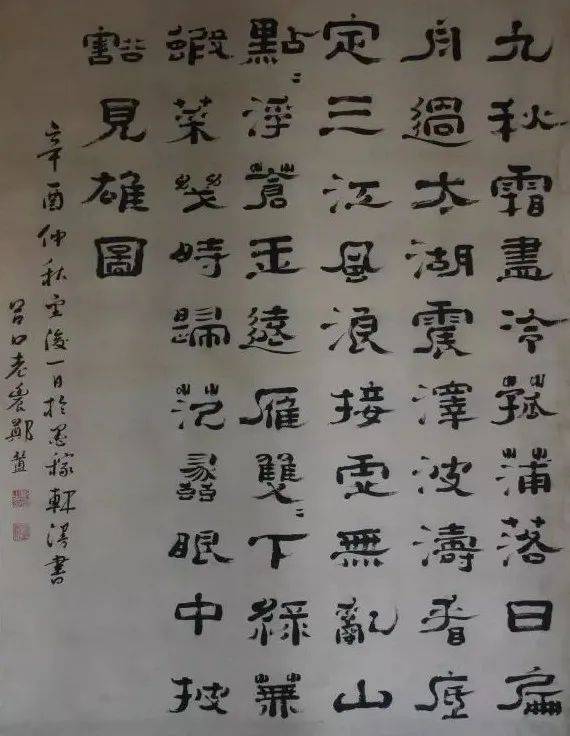 九秋霜盡冷菰蒲落日扁
舟過太湖震澤波濤看底
定三江風浪接虛無亂山
點〻浮蒼玉遠雁雙〻下綠蕪
蝦菜幾時歸范蠡眼中披
豁見雄圖
辛酉仲秋望後一日於墨稼軒漫書
谷口老農鄭簠